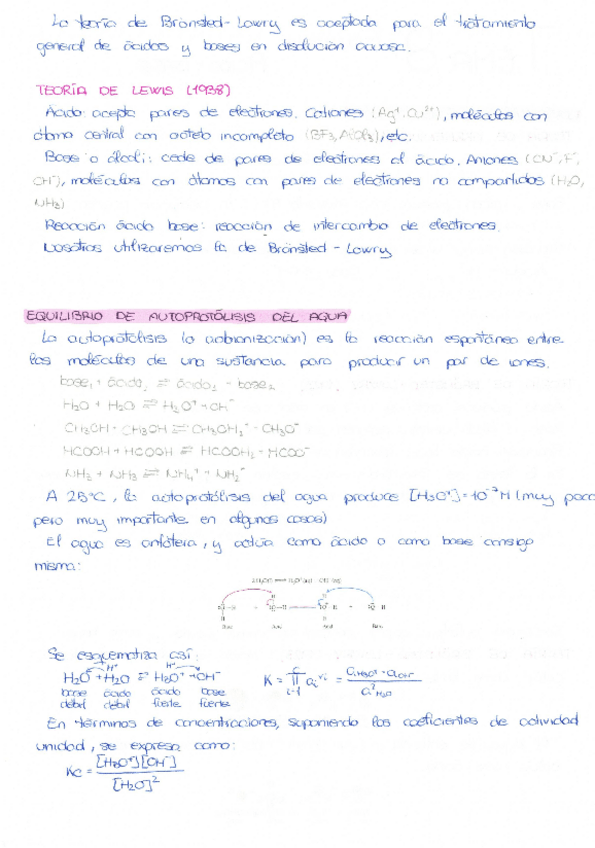 La teoría de Bronsted-Lowry es aceptada para el tratamiento
general de ácidos y bases en disolución acuosa.
TEORÍA DE LEWIS (1938)
Ácido: acepta pares de electrones. Cationes (Ag⁺, Cu²⁺), moléculas con
átomo central con octeto incompleto (BF₃, AlCl₃), etc.
Base o álcali: cede de pares de electrones al ácido. Aniones (CN⁻, F⁻,
OH⁻), moléculas con átomos con pares de electrones no compartidos (H₂O,
NH₃)
Reacción ácido base: reacción de intercambio de electrones.
Nosotros utilizaremos la de Bränsted - Lowry
EQUILIBRIO DE AUTOPROTÓLISIS DEL AGUA
La autoprotólisis (o autoionización) es la reacción espontánea entre
las moléculas de una sustancia para producir un par de iones.
base₁ + ácido₂ ⇌ ácido₁ + base₂
H₂O + H₂O ⇌ H₃O⁺ + OH⁻
CH₃OH + CH₃OH ⇌ CH₃OH₂⁺ + CH₃O⁻
HCOOH + HCOOH ⇌ HCOOH₂⁺ + HCOO⁻
NH₃ + NH₃ ⇌ NH₄⁺ + NH₂⁻
A 25ºC, la autoprotólisis del agua produce [H₃O⁺] = 10⁻⁷ M (muy poco
pero muy importante en algunos casos)
El agua es anfótera, y actúa como ácido o como base consigo
misma:
Se esquematiza así:
H⁺ H⁺
H₂O + H₂O ⇌ H₃O⁺ + OH⁻ K = ∏ aᵢ^νᵢ = a_H₃O⁺ · a_OH⁻ / a²_H₂O
base ácido ácido base
débil débil fuerte fuerte
En términos de concentraciones, suponiendo los coeficientes de actividad
unidad, se expresa como:
Kc = [H₃O⁺][OH⁻] / [H₂O]²